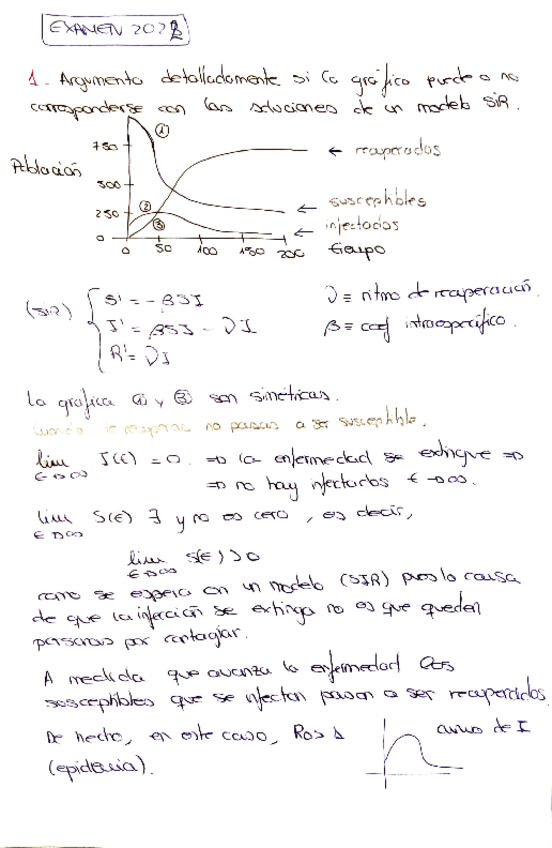 EXAMEN 2022
1. Argumenta detalladamente si la gráfica puede o no
corresponderse con las soluciones de un modelo SIR.
①
750
Población
← recuperados
500
②
← susceptibles
250
③
← infectados
0
0 50 100 150 200 tiempo
(SIR) S' = -βSI
I' = βSI - νI
R' = νI
ν ≡ ritmo de recuperación.
β ≡ coef intraespecífico.
La gráfica ① y ③ son simétricas.
Cuando te recuperas no pasas a ser susceptible.
lim I(t) = 0. ⇒ la enfermedad se extingue ⇒
t→∞
⇒ no hay infectados t→∞.
lim S(t) ∃ y no es cero, es decir,
t→∞
lim S(t) > 0
t→∞
como se espera en un modelo (SIR) pues la causa
de que la infección se extinga no es que queden
personas por contagiar.
A medida que avanza la enfermedad los
susceptibles que se infectan pasan a ser recuperados.
De hecho, en este caso, R₀ > 1
(epidemia).
curva de I